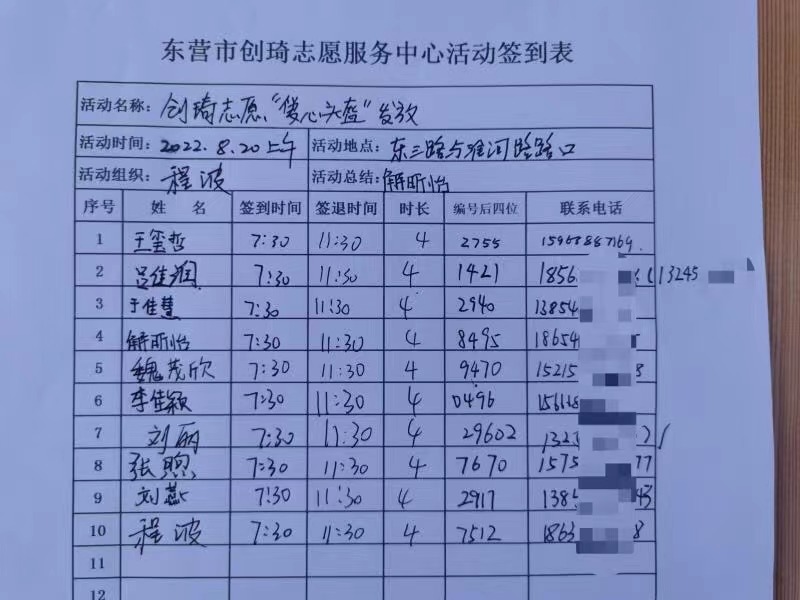 东营市创琦志愿服务中心活动签到表
活动名称：创琦志愿"暖心头盔"发放
活动时间：2022.8.20上午 活动地点：东三路与淮河路路口
活动组织：程波 活动总结：解昕怡
序号 姓名 签到时间 签退时间 时长 编号后四位 联系电话
1 王玺哲 7:30 11:30 4 2755
2 吕佳润 7:30 11:30 4 1421 1856 13245
3 于佳慧 7:30 11:30 4 2940 13854
4 解昕怡 7:30 11:30 4 8495 18654
5 魏茂欣 7:30 11:30 4 9470 15215
6 李佳颖 7:30 11:30 4 0496
7 刘丽 7:30 11:30 4 29602
8 张煦 7:30 11:30 4 7670 1575 77
9 刘燕 7:30 11:30 4 2917
10 程波 7:30 11:30 4 7512 1863 8
11
12